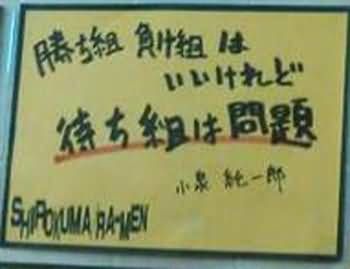 勝ち組 負け組は
いいけれど
待ち組は問題
小泉 純一郎
SHIROKUMA RA-MEN